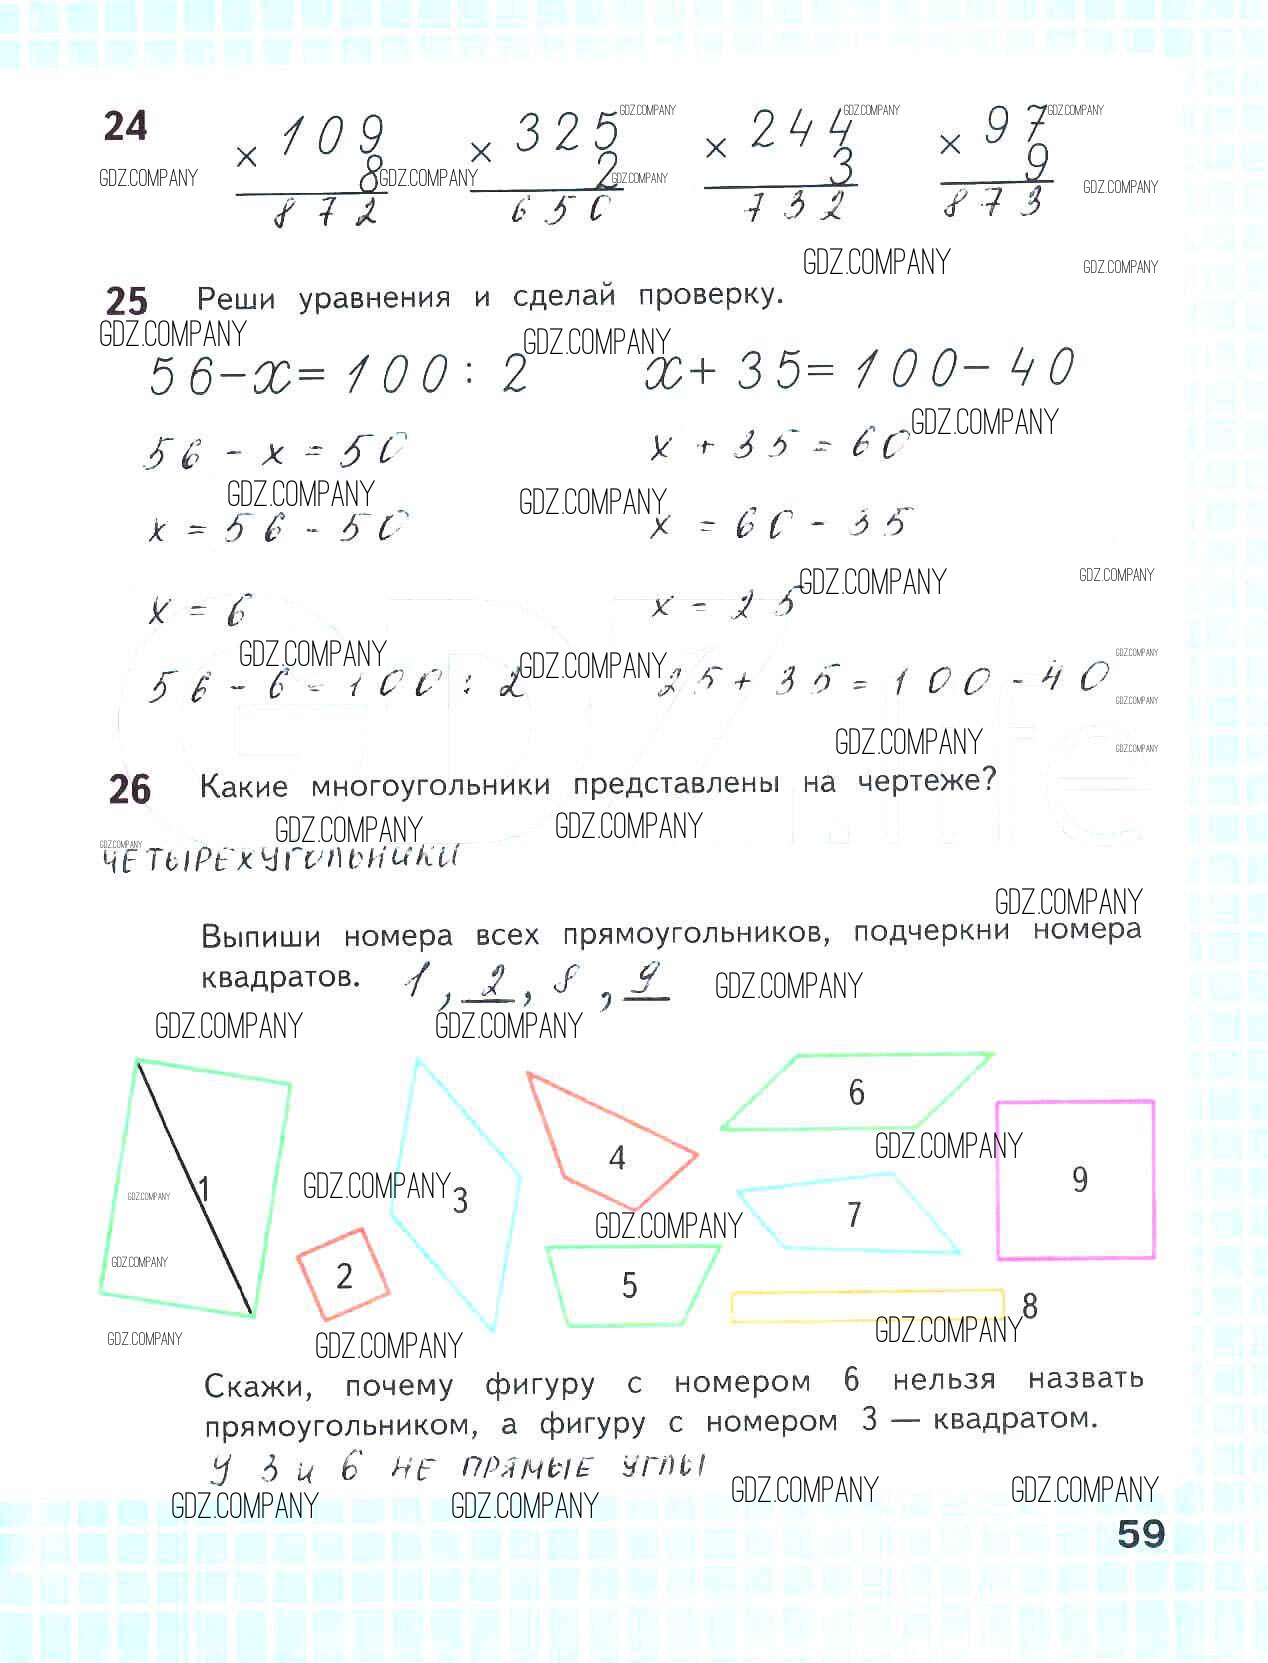 24
× 109 × 325 × 244 × 97
8 2 3 9
872 650 732 873
25 Реши уравнения и сделай проверку.
56-x=100:2 x+35=100-40
56-x=50 x+35=60
x=56-50 x=60-35
x=6 x=25
56-6=100:2 25+35=100-40
26 Какие многоугольники представлены на чертеже?
ЧЕТЫРЕХУГОЛЬНИКИ
Выпиши номера всех прямоугольников, подчеркни номера
квадратов. 1, 2, 8, 9
1 2 3 4 5 6 7 8 9
Скажи, почему фигуру с номером 6 нельзя назвать
прямоугольником, а фигуру с номером 3 — квадратом.
У 3 и 6 НЕ ПРЯМЫЕ УГЛЫ
59
GDZ.COMPANY